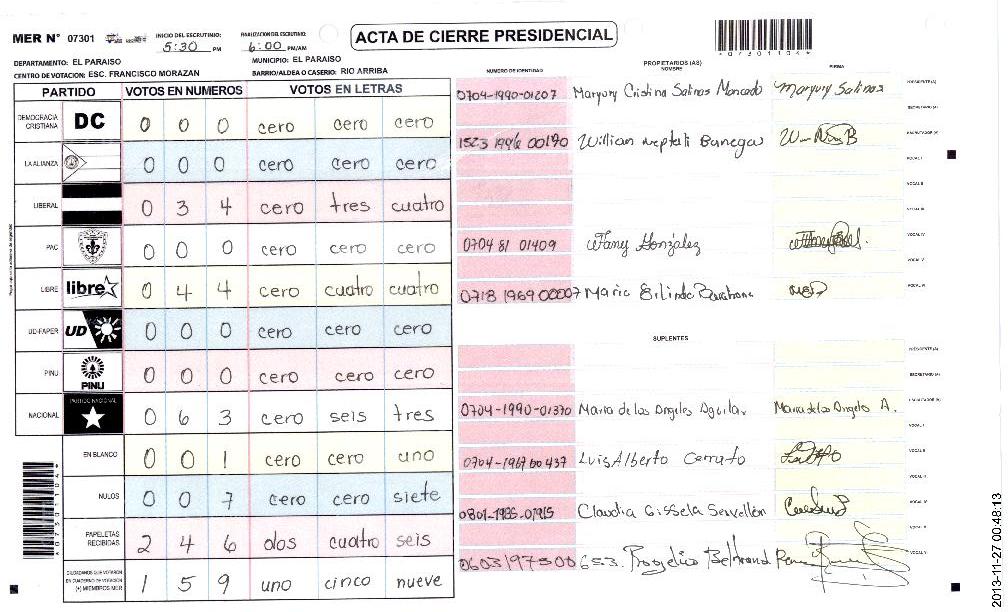 MER N° 07301
INICIO DEL ESCRUTINIO: 5:30 PM
FINALIZACION DEL ESCRUTINIO: 6:00 PM/AM
ACTA DE CIERRE PRESIDENCIAL
*07301104*
DEPARTAMENTO: EL PARAISO
MUNICIPIO: EL PARAISO
CENTRO DE VOTACION: ESC. FRANCISCO MORAZAN
BARRIO/ALDEA O CASERIO: RIO ARRIBA
PARTIDO VOTOS EN NUMEROS VOTOS EN LETRAS
DEMOCRACIA CRISTIANA DC 0 0 0 cero cero cero
LA ALIANZA 0 0 0 cero cero cero
LIBERAL 0 3 4 cero tres cuatro
PAC 0 0 0 cero cero cero
LIBRE libre 0 4 4 cero cuatro cuatro
UD-FAPER UD 0 0 0 cero cero cero
PINU PINU 0 0 0 cero cero cero
NACIONAL PARTIDO NACIONAL 0 6 3 cero seis tres
EN BLANCO 0 0 1 cero cero uno
NULOS 0 0 7 cero cero siete
PAPELETAS RECIBIDAS 2 4 6 dos cuatro seis
CIUDADANOS QUE VOTARON EN CUADERNO DE VOTACION (+) MIEMBROS MER 1 5 9 uno cinco nueve
NUMERO DE IDENTIDAD
PROPIETARIOS (AS)
NOMBRE
FIRMA
0704-1990-01207 Maryury Cristina Salinas Moncado Maryury Salinas PRESIDENTE (A)
SECRETARIO (A)
1523 1946 00190 Willian Neptali Banegas ESCRUTADOR (A)
VOCAL I
VOCAL II
VOCAL III
0704 81 01409 González VOCAL IV
VOCAL V
0718 1969 00007 Maria Erlinda Barahona VOCAL VI
SUPLENTES
PRESIDENTE (A)
SECRETARIO (A)
0704-1990-01370 Maria de los Angeles Aguilar Maria de los Angeles A. ESCRUTADOR (A)
VOCAL I
0704-1967 00437 Luis Alberto Cerrato VOCAL II
VOCAL III
0801-1985-01915 Claudia Gissela Servellón VOCAL IV
VOCAL V
0603197500653. Rogelio Beltrand
2013-11-27 00:48:13